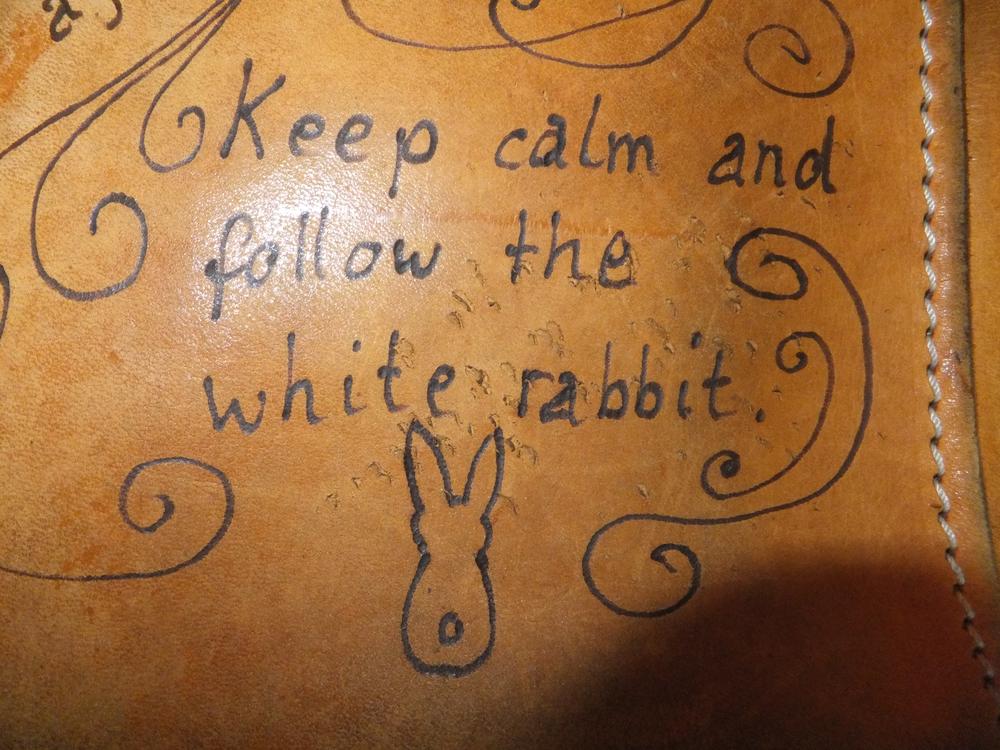 Keep calm and
follow the
white rabbit.